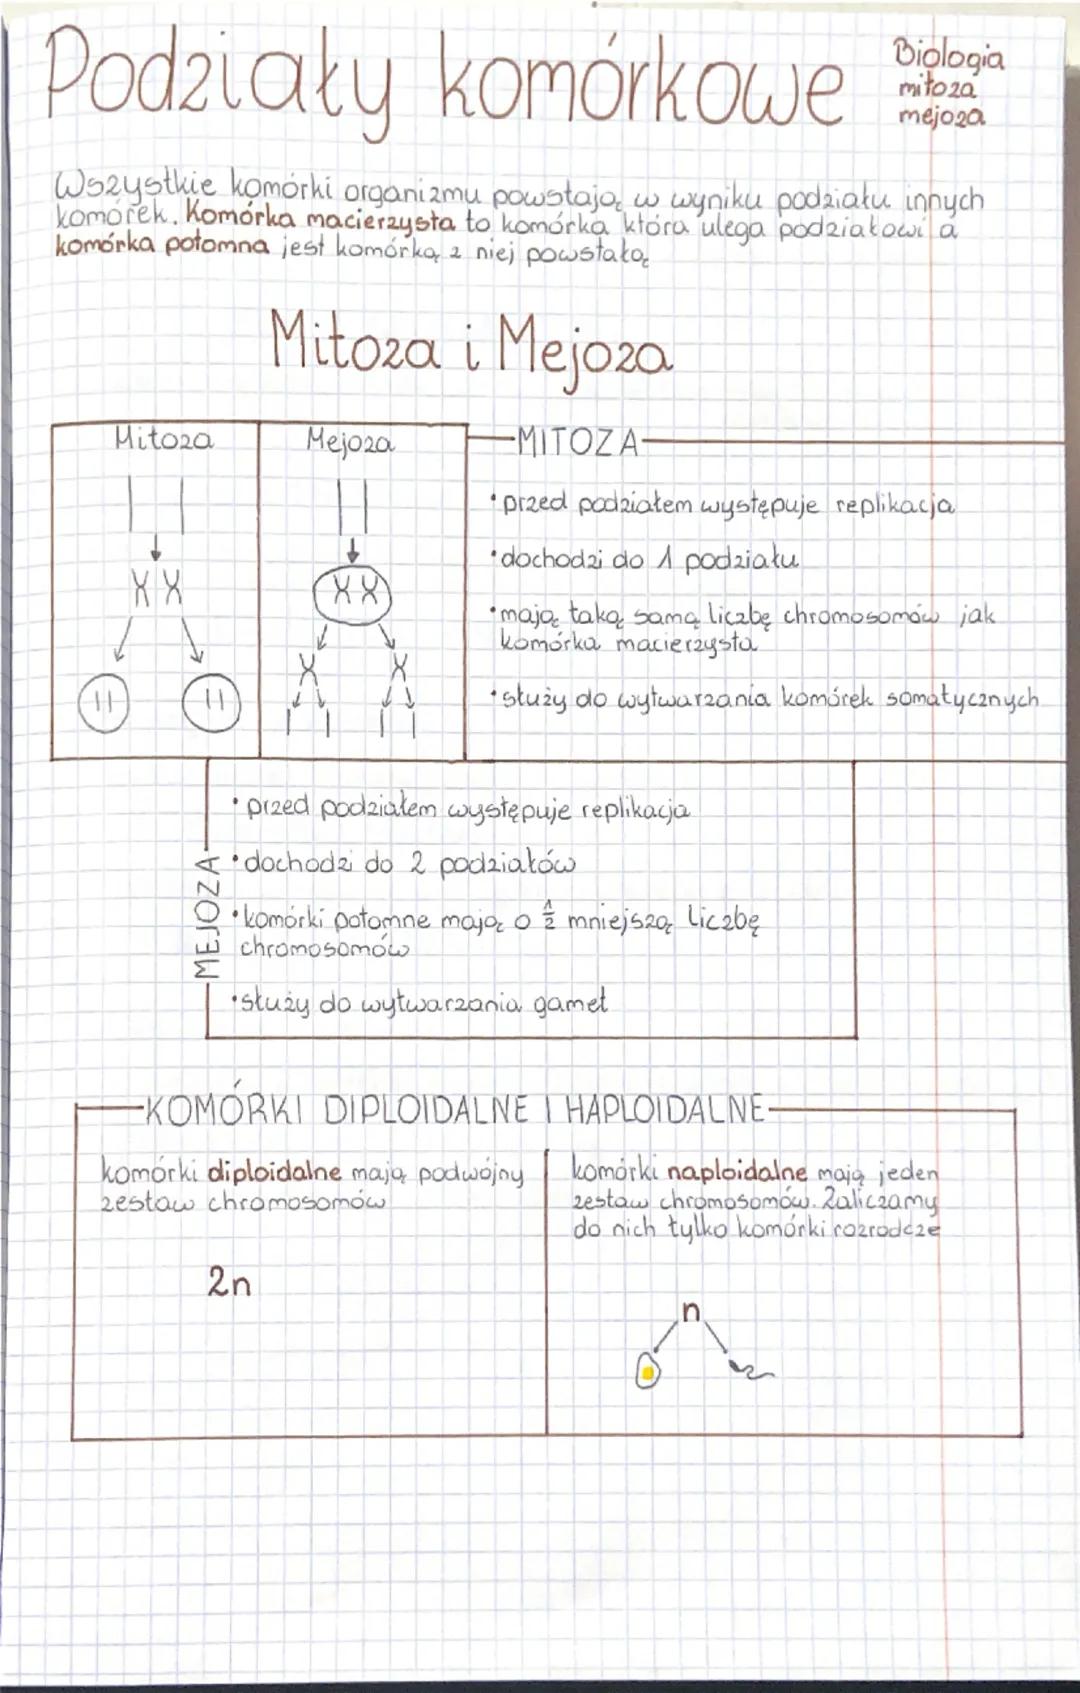 Podziały komórkowe
Biologia
mitoza
mejoza
Wszystkie komórki organizmu powstają w wyniku podziału innych
komórek. Komórka macierzysta to komórka która ulega podziałowi a
komórka potomna jest komórką z niej powstałą
Mitoza i Mejoza
Mitoza
Mejoza
MITOZA
•przed podziałem występuje replikacja
•dochodzi do 1 podziału
•mają taką samą liczbę chromosomów jak
komórka macierzysta
•służy do wytwarzania komórek somatycznych
MEJOZA
•przed podziałem występuje replikacja
•dochodzi do 2 podziałów
•komórki potomne mają o 1/2 mniejszą liczbę
chromosomów
•służy do wytwarzania gamet
KOMÓRKI DIPLOIDALNE I HAPLOIDALNE
komórki diploidalne mają podwójny
zestaw chromosomów
2n
komórki haploidalne mają jeden
zestaw chromosomów. Zaliczamy
do nich tylko komórki rozrodcze
n